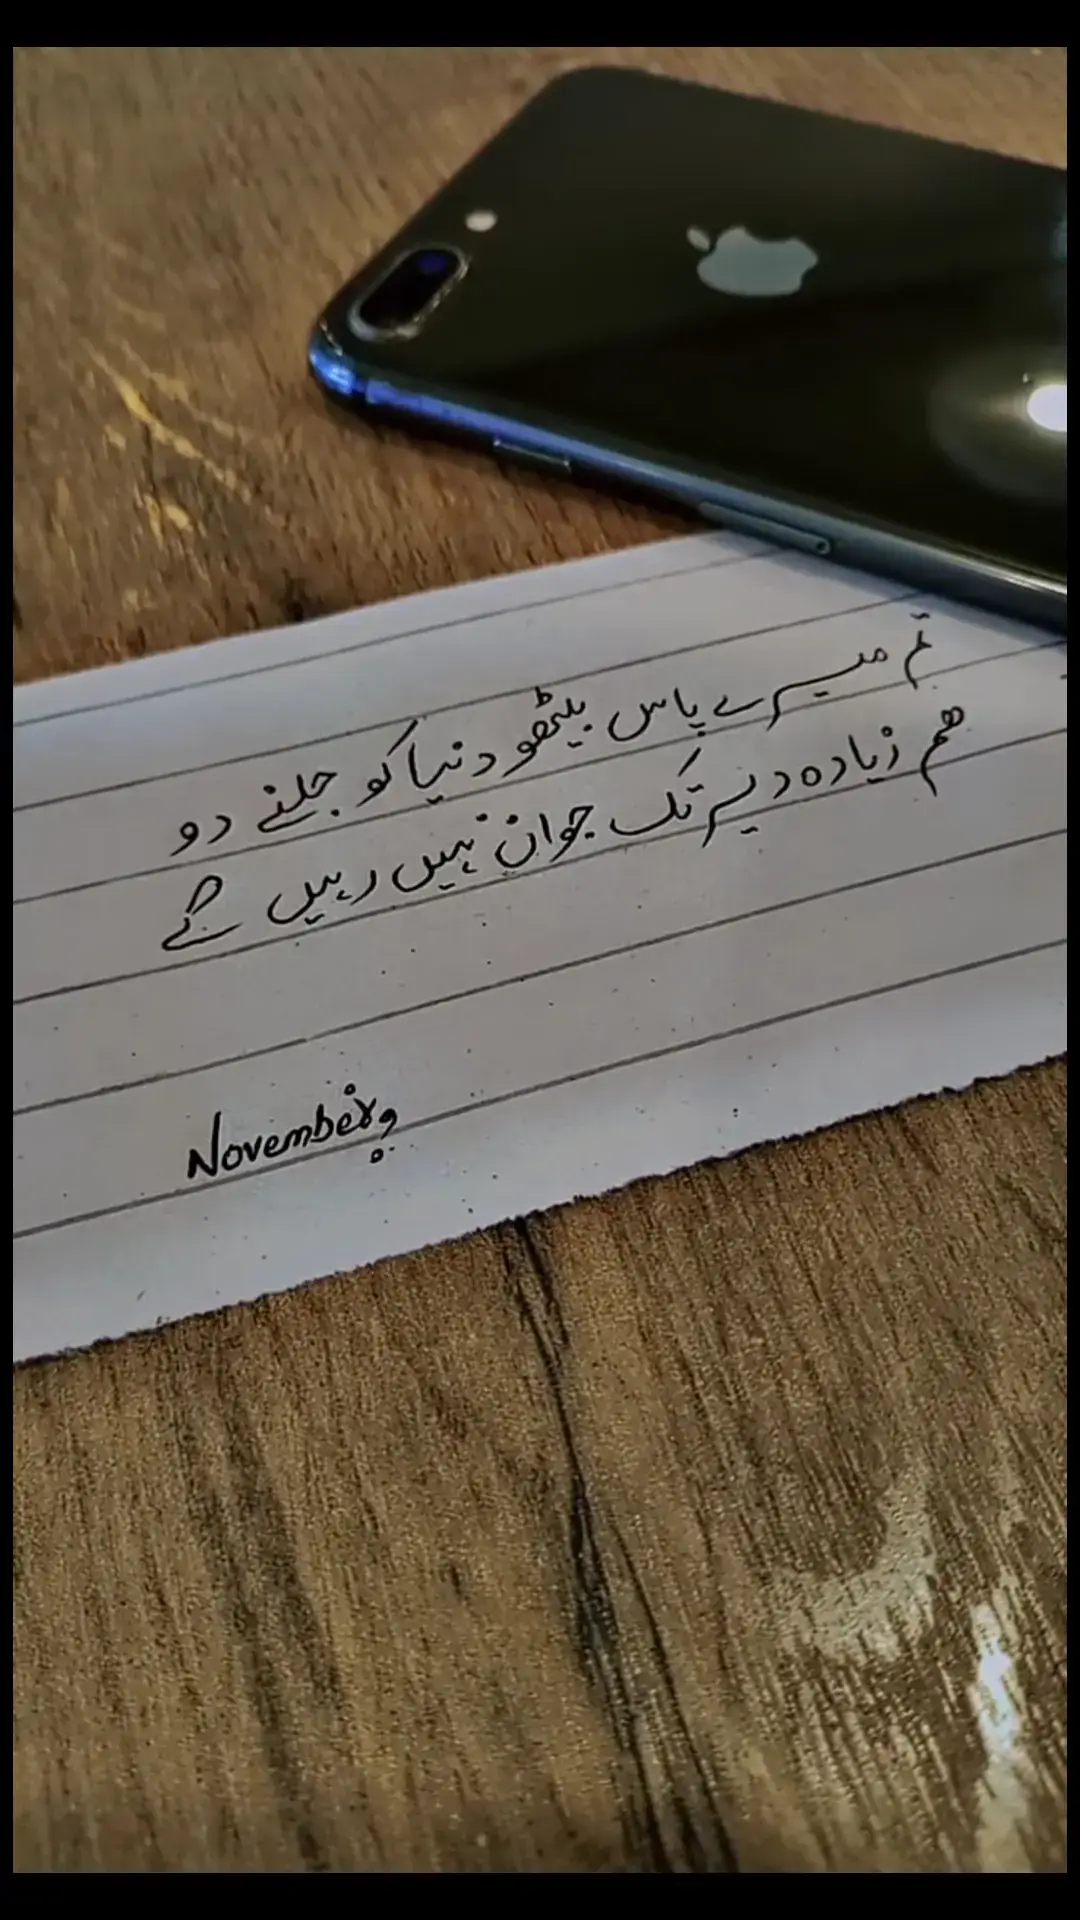 تم میرے پاس بیٹھو دنیا کو جلنے دو
ھم زیادہ دیر تک جوان نہیں رہیں گے
November